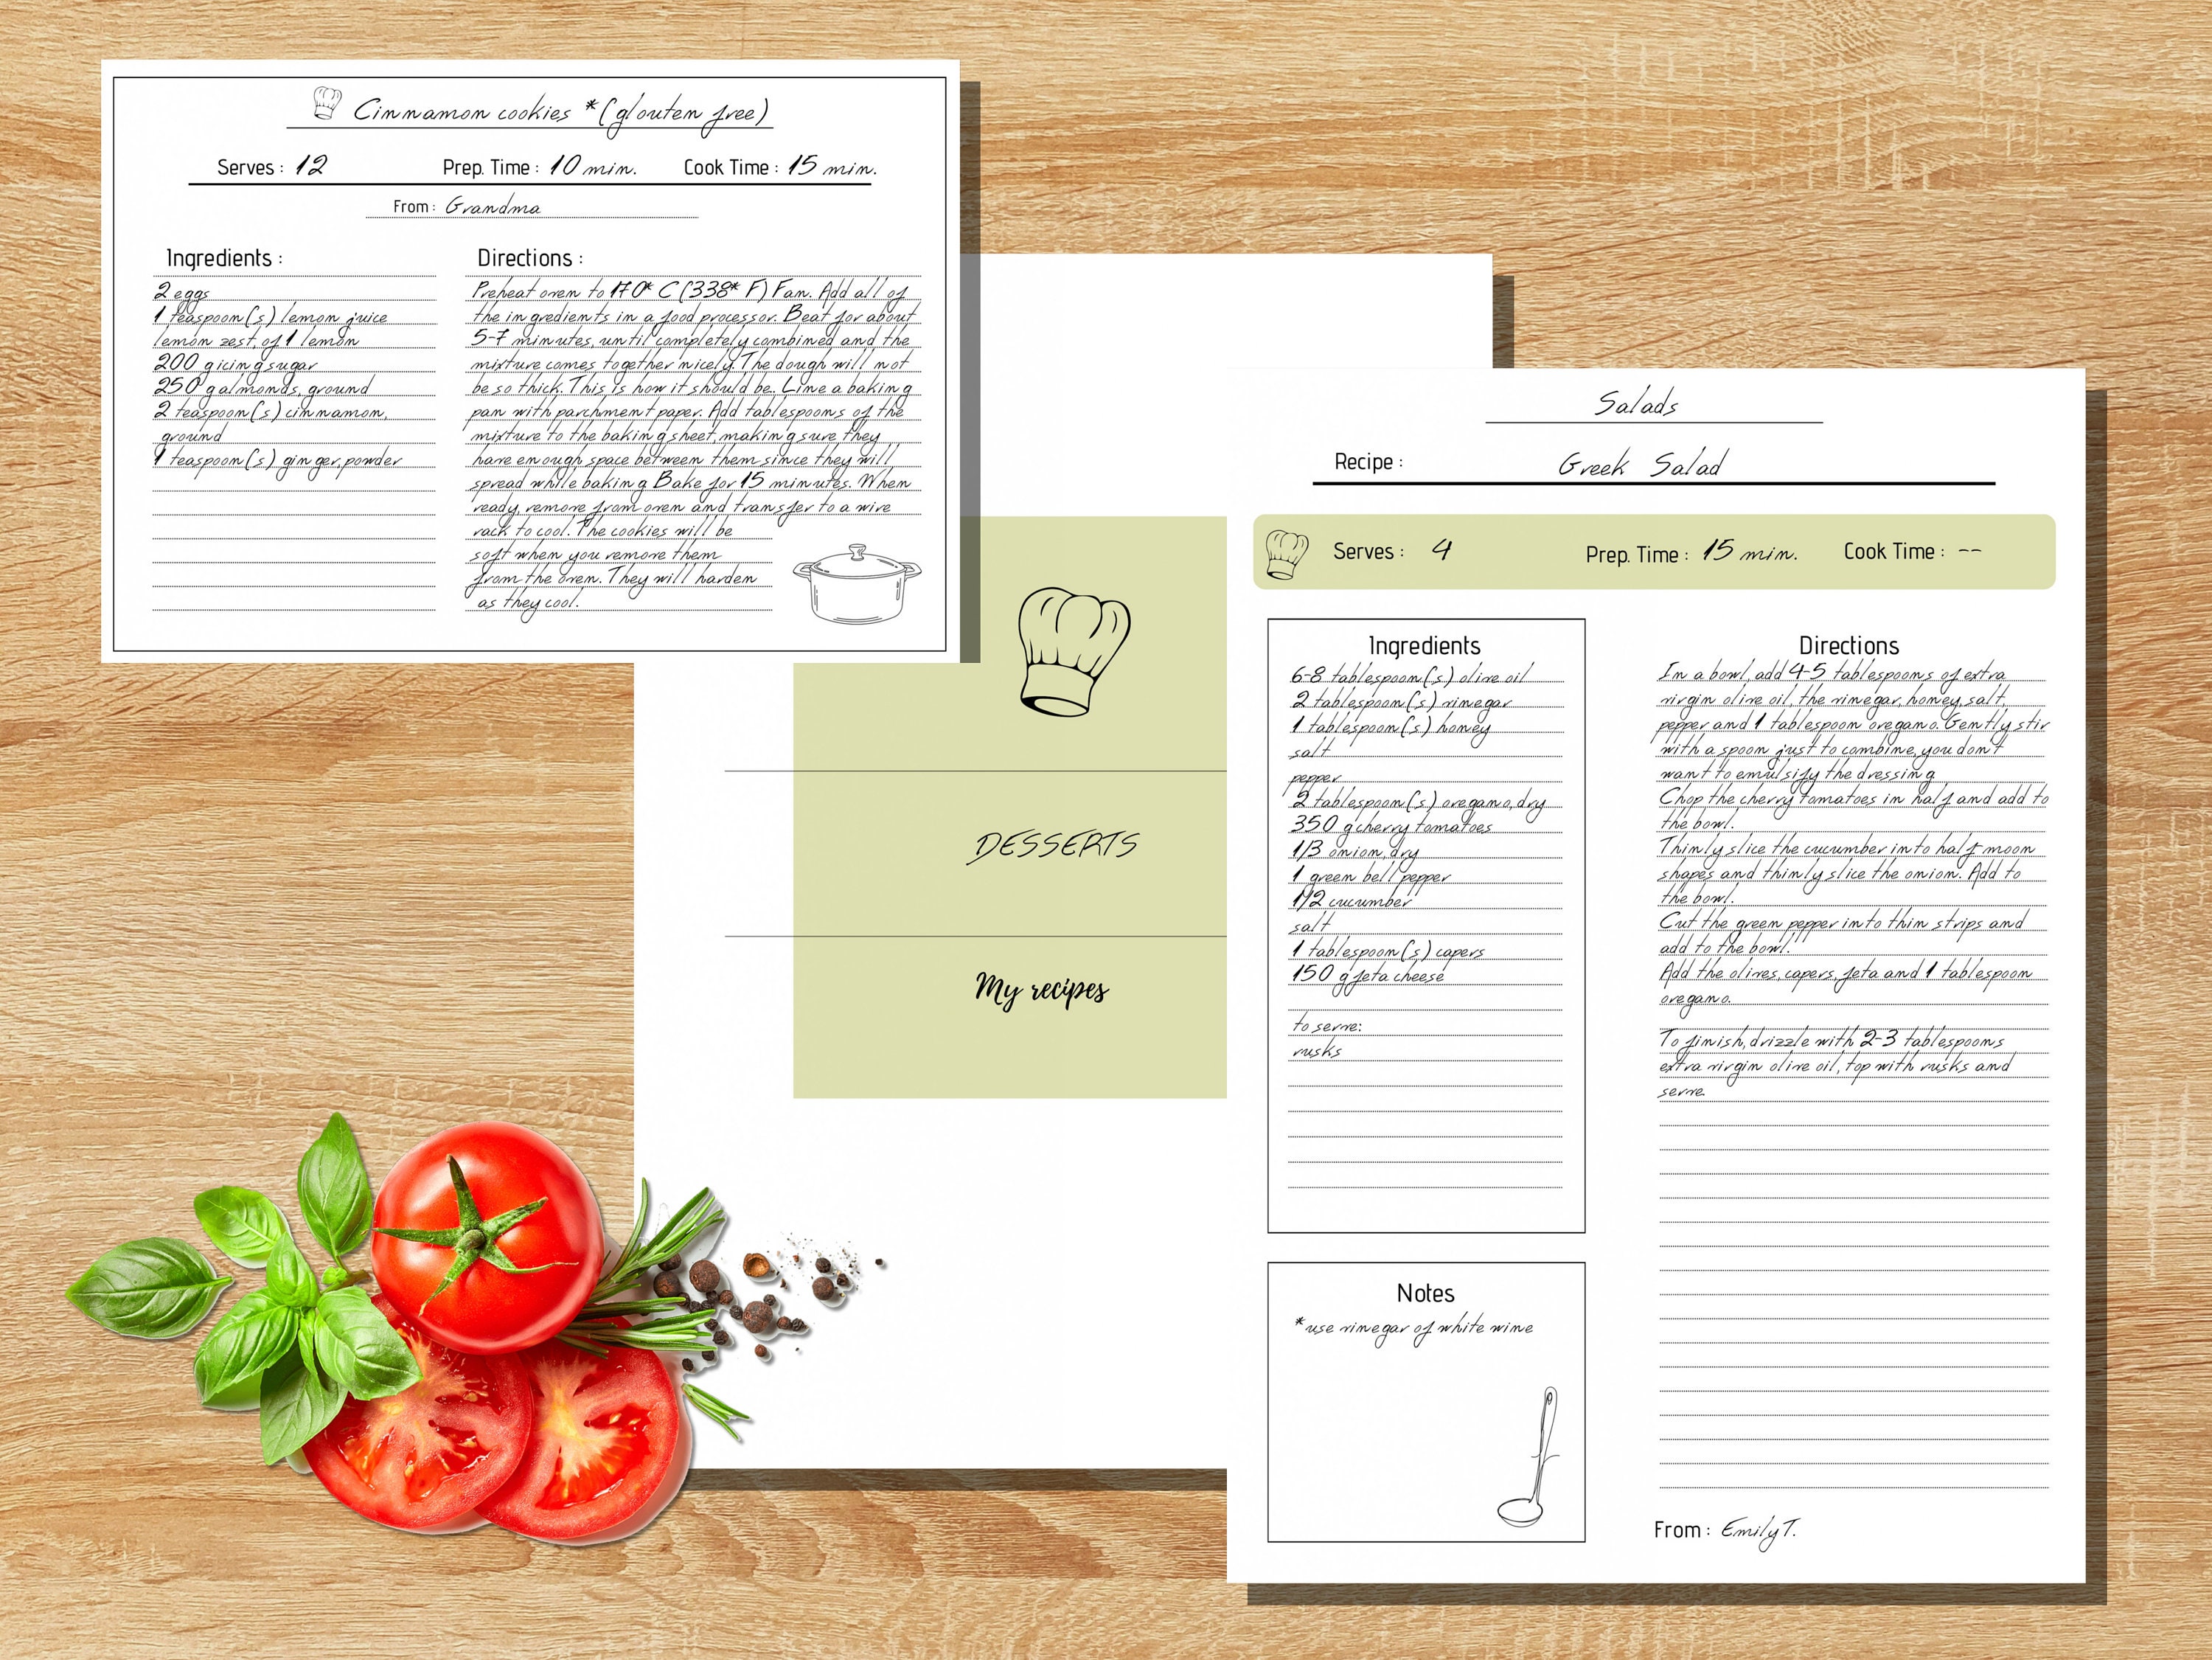 Cinnamon cookies *(glouten free)
Serves : 12 Prep. Time : 10 min. Cook Time : 15 min.
From : Grandma
Ingredients :
2 eggs
1 teaspoon(s) lemon juice
lemon zest, of 1 lemon
200 g icing sugar
250 g almonds, ground
2 teaspoon(s) cinnamon,
ground
1 teaspoon(s) ginger, powder
Directions :
Preheat oven to 170* C (338* F) Fan. Add all of
the ingredients in a food processor. Beat for about
5-7 minutes, until completely combined and the
mixture comes together nicely. The dough will not
be so thick. This is how it should be. Line a baking
pan with parchment paper. Add tablespoons of the
mixture to the baking sheet, making sure they
have enough space between them since they will
spread while baking Bake for 15 minutes. When
ready, remove from oven and transfer to a wire
rack to cool. The cookies will be
soft when you remove them
from the oven. They will harden
as they cool.
DESSERTS
My recipes
Salads
Recipe : Greek Salad
Serves : 4 Prep. Time : 15 min. Cook Time : --
Ingredients
6-8 tablespoon(s) olive oil
2 tablespoon(s) vinegar
1 tablespoon(s) honey
salt
pepper
2 tablespoon(s) oregano, dry
350 g cherry tomatoes
1/3 onion, dry
1 green bell pepper
1/2 cucumber
salt
1 tablespoon(s) capers
150 g feta cheese
to serve:
rusks
Notes
*use vinegar of white wine
Directions
In a bowl, add 4-5 tablespoons of extra
virgin olive oil, the vinegar, honey, salt,
pepper and 1 tablespoon oregano. Gently stir
with a spoon just to combine, you don't
want to emulsify the dressing
Chop the cherry tomatoes in half and add to
the bowl.
Thinly slice the cucumber into half moon
shapes and thinly slice the onion. Add to
the bowl.
Cut the green pepper into thin strips and
add to the bowl.
Add the olives, capers, feta and 1 tablespoon
oregano.
To finish, drizzle with 2-3 tablespooms
extra virgin olive oil, top with rusks and
serve.
From : Emily T.